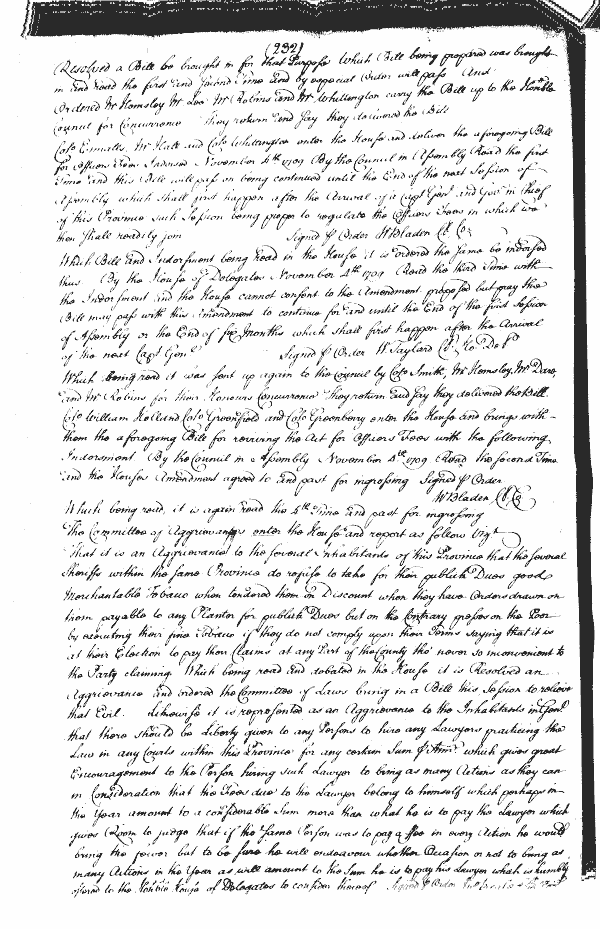 (232)
Resolved a Bill be brought in for that Purpose Which Bill being prepared was brought
in and read the first and second Time and by especial Order will pass And
Ordered Mr Hemsley Mr Lee Mr Robins and Mr Whittington carry the Bill up to the Honble
Council for Concurrence they return and say they delivered the Bill
Colo Ennalls Mr Hall and Colo Whittington enter the House and deliver the aforegoing Bill
for Officers Fees Indorsed November 4th 1709 By the Council in Assembly Read the first
Time and this Bill will pass on being continued until the End of the next Session of
Assembly which shall first happen after the Arrival of a Capt Genl and Govr in Chief
of this Province such Session being proper to regulate the Officers Fees in which we
then shall readily join Signed p Order W Bladen Cl Co
Which Bill and Indorsment being read in the House it is ordered the same be indorsed
thus By the House of Delegates November 4th 1709 Read the third Time with
the Indorsment and the House cannot consent to the Amendment proposed but pray the
Bill may pass with this Amendment to continue for and until the End of the first Session
of Assembly or the End of six Months which shall first happen after the Arrival
of the next Capt Genl Signed p Order W Taylard Cl Ho Del
Which being read it was sent up again to the Council by Colo Smith, Mr Hemsley, Mr
and Mr Robins for their Honours Concurrence They return and say they delivered the Bill.
Colo William Holland Colo Greenfield and Colo Greenberry enter the House and brings with
them the aforegoing Bill for reviving the Act for Officers Fees with the following
Indorsment By the Council in Assembly November 4th 1709 Read the second Time
and the Houses Amendment agreed to and past for ingrossing Signed p Order
W Bladen Cl Co
Which being read, it is again read the 4th Time and past for ingrossing
The Committee of Aggrievances enter the House and report as follows Vizt
That it is an Aggrievance to the several Inhabitants of this Province that the several
Sheriffs within the same Province do refuse to take for their publick Dues good
Merchantable Tobacco when tendered them on Discount when they have Orders drawn on
them payable to any Planter for publick Dues but on the Contrary press on the Poor
by executing their fine Tobacco if they do not comply upon their Terms saying that it is
at their Election to pay their Claims at any Part of the County tho' never so inconvenient to
the Party claiming Which being read and debated in the House it is Resolved an
Aggrievance and ordered the Committee of Laws bring in a Bill this Session to relieve
that Evil. Likewise it is represented as an Aggrievance to the Inhabitants in Genl
that there should be Liberty given to any Persons to hire any Lawyers practicing the
Law in any Courts within this Province for any certain Sum p Ann: which gives great
Encouragement to the Person hiring such Lawyer to bring as many Actions as they can
in Consideration that the Fees due to the Lawyer belong to himself which perhaps in
the Year amount to a considerable Sum more than what he is to pay the Lawyer which
gives Room to judge that if the same Person was to pay a Fee in every Action he would
bring the fewer but to be sure he will endeavour whether Occasion or not to bring as
many Actions in the Year as will amount to the Sum he is to pay his Lawyer which is humbly
offered to the Honble House of Delegates to consider thereof Signed p Order